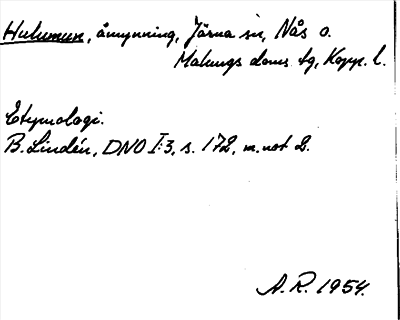 Hulumun, åmynning, Järna sn, Nås o.
Malungs doms. tg, Kopp. l.
Etymologi.
B. Lindén, DNO I:3, s. 172, m. not 2.
A. R. 1954.